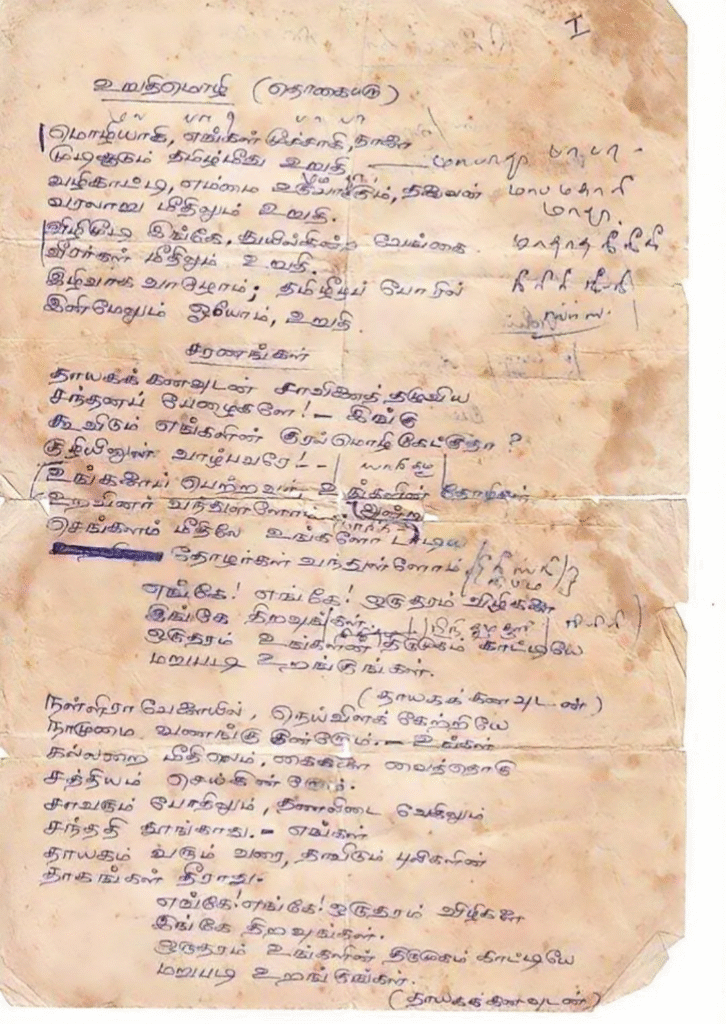 I
உறுதிமொழி (தொகையறா)
மொழியாகி, எங்கள் மூச்சாகி, நாளை
முடிசூடும் தமிழ்மீது உறுதி
வழிகாட்டி, எம்மை உருவாக்கும், தலைவன்
வரலாறு மீதிலும் உறுதி.
விழிமூடி இங்கே, துயில்கின்ற வேங்கை
வீரர்கள் மீதிலும் உறுதி.
இழிவாக வாழோம்; தமிழீழப் போரில்
இனிமேலும் ஓயோம், உறுதி
சரணங்கள்
தாயகக் கனவுடன் சாவினைத் தழுவிய
சந்தனப் பேழைகளே! - இங்கு
கூவிடும் எங்களின் குரல்மொழி கேட்குதா?
குழியினுள் வாழ்பவரே! -
உங்களைப் பெற்றவர் உங்களின் தோழிகள்
உறவினர் வந்துள்ளோம் - அன்று
செங்களம் மீதிலே உங்களோ டாடிய
தோழர்கள் வந்துள்ளோம்
எங்கே! எங்கே! ஒருதரம் விழிகளை
இங்கே திறவுங்கள்
ஒருதரம் உங்களின் திருமுகம் காட்டியே
மறுபடி உறங்குங்கள்.
(தாயகக் கனவுடன்)
நள்ளிரா வேளையில், நெய்விளக் கேற்றியே
நாமுமை வணங்கு கின்றோம். - உங்கள்
கல்லறை மீதிலெம், கைகளை வைத்தொரு
சத்தியம் செய்கின்றோம்.
சாவரும் போதிலும், தணலிடை வேகிலும்
சந்ததி தூங்காது. - எங்கள்
தாயகம் வரும் வரை, தாவிடும் புலிகளின்
தாகங்கள் தீராது.
எங்கே! எங்கே! ஒருதரம் விழிகளை
இங்கே திறவுங்கள்.
ஒருதரம் உங்களின் திருமுகம் காட்டியே
மறுபடி உறங்குங்கள்.
(தாயகக்கனவுடன்)